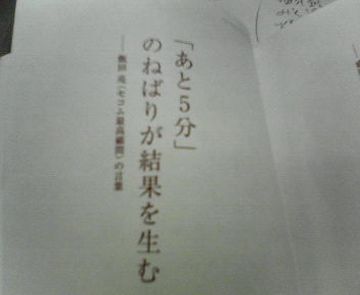 「あと5分」
のねばりが結果を生む
──飯田 亮(セコム最高顧問)の言葉